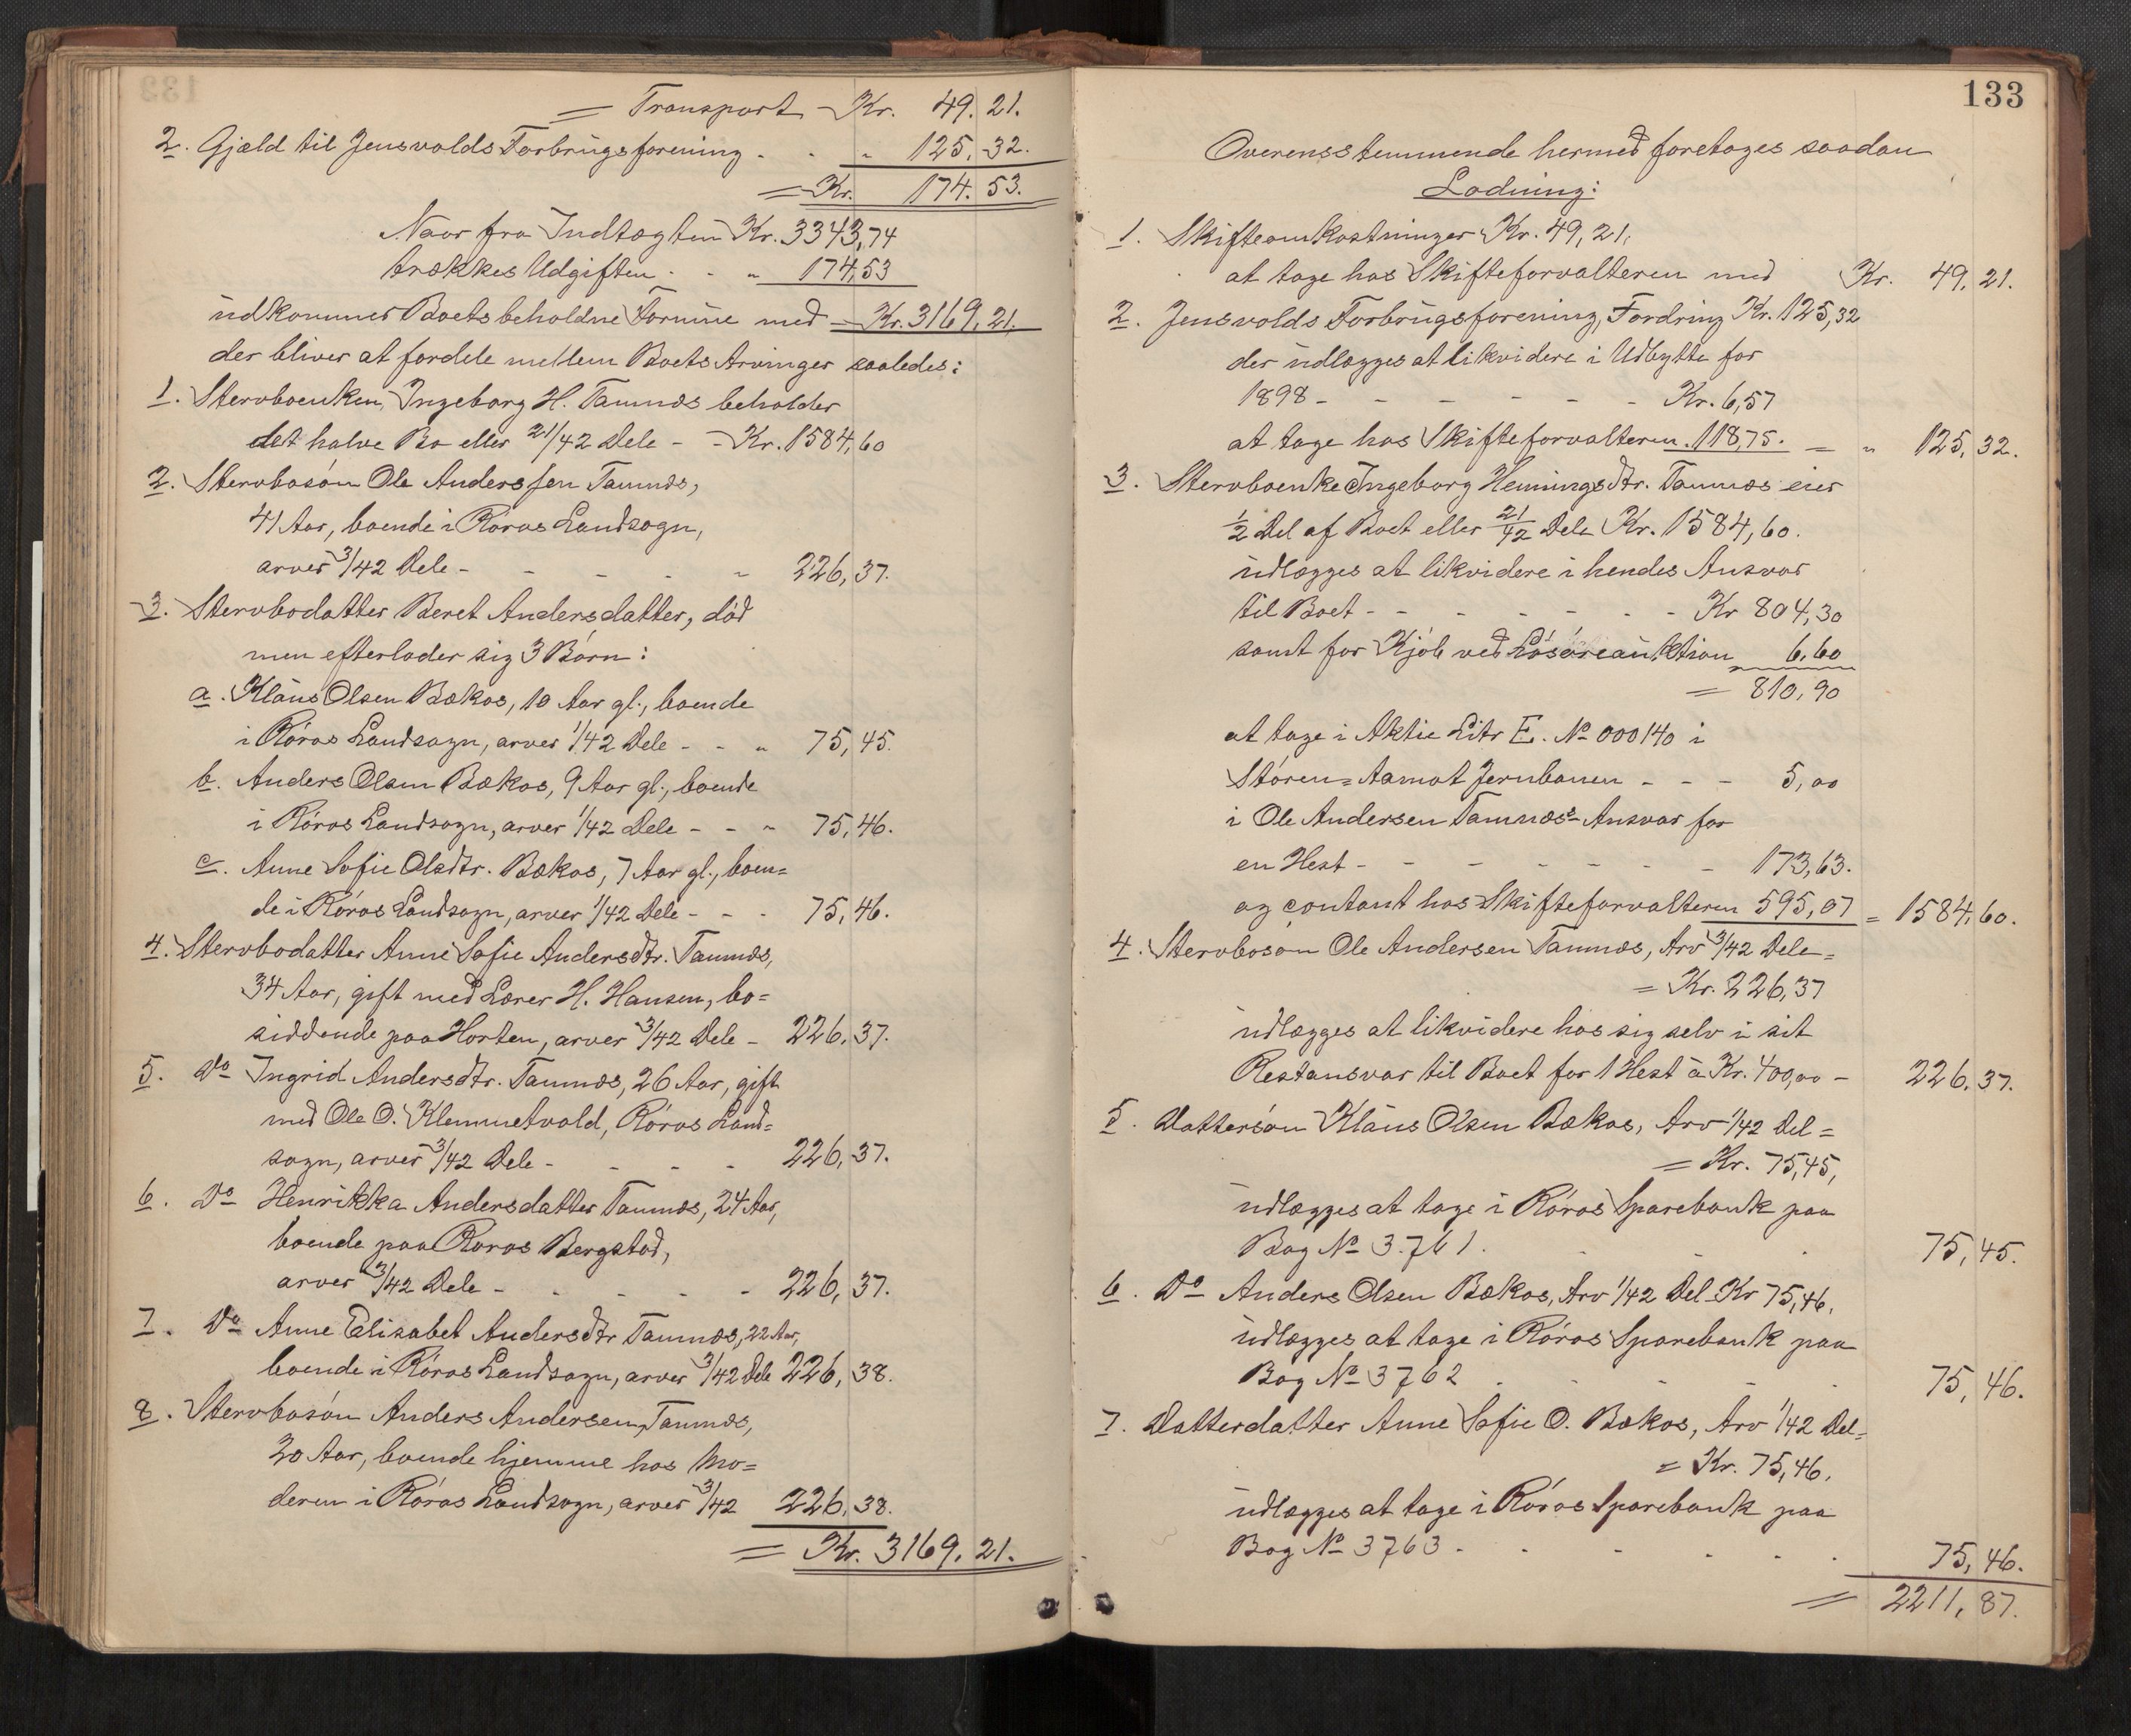 = Transport - Kr. 49.21.
2. Gjæld til Jensvolds Forbrugsforening - - „ 125,32.
= Kr. 174.53.
Naar fra Indtægten Kr. 3343,74
trækkes Udgiften - - „ 174,53
udkommer Boets beholdne Formue med - Kr. 3169,21.
der bliver at fordele mellem Boets Arvinger saaledes:
1. Stervboenken, Ingeborg H. Tamnæs beholder
det halve Bo eller 21/42 Dele - - Kr. 1584,60
2. Stervbosøn Ole Anderssen Tamnæs,
41 Aar, boende i Røros Landsogn,
arver 3/42 Dele - - - - „ 226,37.
3. Stervbodatter Beret Andersdatter, død
men efterlader sig 3 Børn:
a. Klaus Olsen Bækos, 10 Aar gl., boende
i Røros Landsogn, arver 1/42 Dele - - „ 75,45.
b. Anders Olsen Bækos, 9 Aar gl., boende
i Røros Landsogn, arver 1/42 Dele - - „ 75,46.
c. Anne Sofie Olsdtr. Bækos, 7 Aar gl., boen=
de i Røros Landsogn, arver 1/42 Dele - - - 75,46.
4. Stervbodatter Anne Sofie Andersdtr. Tamnæs,
34 Aar, gift med Lærer H. Hansen, bo=
siddende paa Horten, arver 3/42 Dele - 226,37.
5. Do Ingrid Andersdtr. Tamnæs, 26 Aar, gift
med Ole O. Klemmetvold, Røros Land=
sogn, arver 3/42 Dele - - - - 226,37.
6. Do Henrikka Andersdatter Tamnæs, 24 Aar,
boende paa Røros Bergstad,
arver 3/42 Dele - - - - - 226,37.
7. Do Anne Elisabet Andersdtr Tamnæs, 22 Aar,
boende i Røros Landsogn, arver 3/42 Dele 226,38.
8. Stervbosøn Anders Andersen Tamnæs,
20 Aar, boende hjemme hos Mo=
deren i Røros Landsogn, arver 3/42 226,38.
= Kr. 3169,21.
133
Overensstemmende hermed foretages saadan
Lodning:
1. Skifteomkostninger Kr. 49,21,
at tage hos Skifteforvalteren med Kr. 49,21.
2. Jensvolds Forbrugsforening, Fordring Kr. 125,32
der udlægges at likvidere i Udbytte for
1898 - - - - - - Kr. 6,57
at tage hos Skifteforvalteren . 118,75. = „ 125,32.
3. Stervboenke Ingeborg Henningsdtr. Tamnæs eier
1/2 Del af Boet eller 21/42 Dele Kr. 1584,60.
udlægges at likvidere i hendes Ansvar
til Boet - - - - - - - Kr 804,30
samt for Kjøb ved Løsøreauktion 6,60
= 810,90
at tage i Aktie Litr E. No 000140 i
Støren=Aamot Jernbanen - - - 5,00
i Ole Andersen Tamnæs's Ansvar for
en Hest - - - - - - - 173,63.
og contant hos Skifteforvalteren 595,07 = 1584,60.
4. Stervbosøn Ole Andersen Tamnæs, Arv 3/42 Dele=
= Kr. 226,37
udlægges at likvidere hos sig selv i sit
Restansvar til Boet for 1 Hest à Kr. 400,00 - 226,37.
5. Dattersøn Klaus Olsen Bækos, Arv 1/42 Del=
= Kr. 75,45,
udlægges at tage i Røros Sparebank paa
Bog No 3761. - - - 75,45.
6. Do Anders Olsen Bækos, Arv 1/42 Del Kr 75,46,
udlægges at tage i Røros Sparebank paa
Bog No 3762 - - - - - 75,46.
7. Datterdatter Anne Sofie O. Bækos, Arv 1/42 Del=
= Kr. 75,46.
udlægges at tage i Røros Sparebank paa
Bog No 3763 - - - - - - 75,46.
= 2211,87.